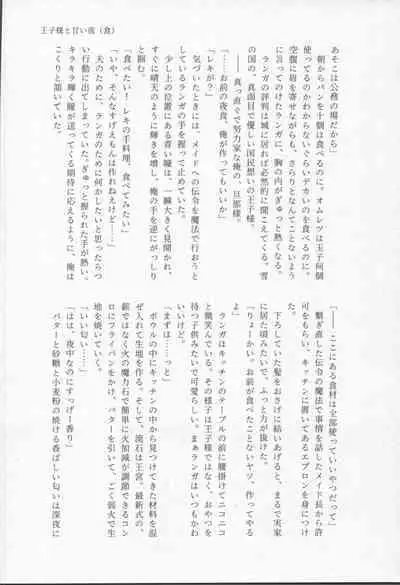 王子様と甘い夜（食）
あそこは公務の場だから」
朝からパンを十個は食べるのに。オムレツは玉子何個
使ってるのかわからないぐらいデカいのを食べるのに。
空腹に眉を寄せながらも、さらりとなんてことないよう
に言ってのけたランガに、胸の内がぎゅっと熱くなる。
ランガの評判は城に居れば必然的に聞こえてくる。雪
の国の、真面目で優しい国民想いの王子様。
――真っ直ぐで努力家な俺の、旦那様。
「……お前の夜食、俺が作ってもいいか」
「レキが？」
気づいたときには、メイドへの伝令を魔法で行おうと
しているランガの手を握って止めていた。
少し上の位置にある青い瞳は、一瞬大きく見開かれ、
すぐに晴天のように輝きを増し、俺の手を逆にがっしり
と掴む。
「食べたい！レキの手料理、食べてみたい」
「いや、そんなすげえもんは作れねえけど……」
夫のために、ランガのために何かしたいと思ったらつ
い行動に出てしまっていた。ぎゅっと握られた手が熱い。
キラキラ輝く瞳が送ってくる期待に応えるように、俺は
こくりと頷いていた。
「――ここにある食材は全部使っていいやつだって」
繋ぎ直した伝令の魔法で事情を話したメイド長から許
可をもらい、キッチンに置いてあるエプロンを身につけ
る。
下ろしていた髪をおさげに結いあげると、まるで実家
に居た頃みたいで、ふっと力が抜けた。
「りょーかい。お前が食べたことないヤツ、作ってやる
よ」
ランガはキッチンのテーブルの前に腰掛けてニコニコ
と微笑んでいる。その様子は王子様ではなく、おやつを
待つ子供みたいで可愛らしい。まぁランガはいつもかわ
いいけど。
「まずは……っと」
ボウルの中にキッチンの中から見つけてきた材料を混
ぜ入れて生地を作る。そして、流石は王宮。最新式の、
薪ではなく火の魔力石で簡単に火加減が調節できるコン
ロにフライパンをかけ、バターを引いて、ごく弱火で生
地を焼いていく。
「いい匂い……」
「はは、夜中なのにすっげー香り」
バターと砂糖と小麦粉の焼ける香ばしい匂いは深夜に